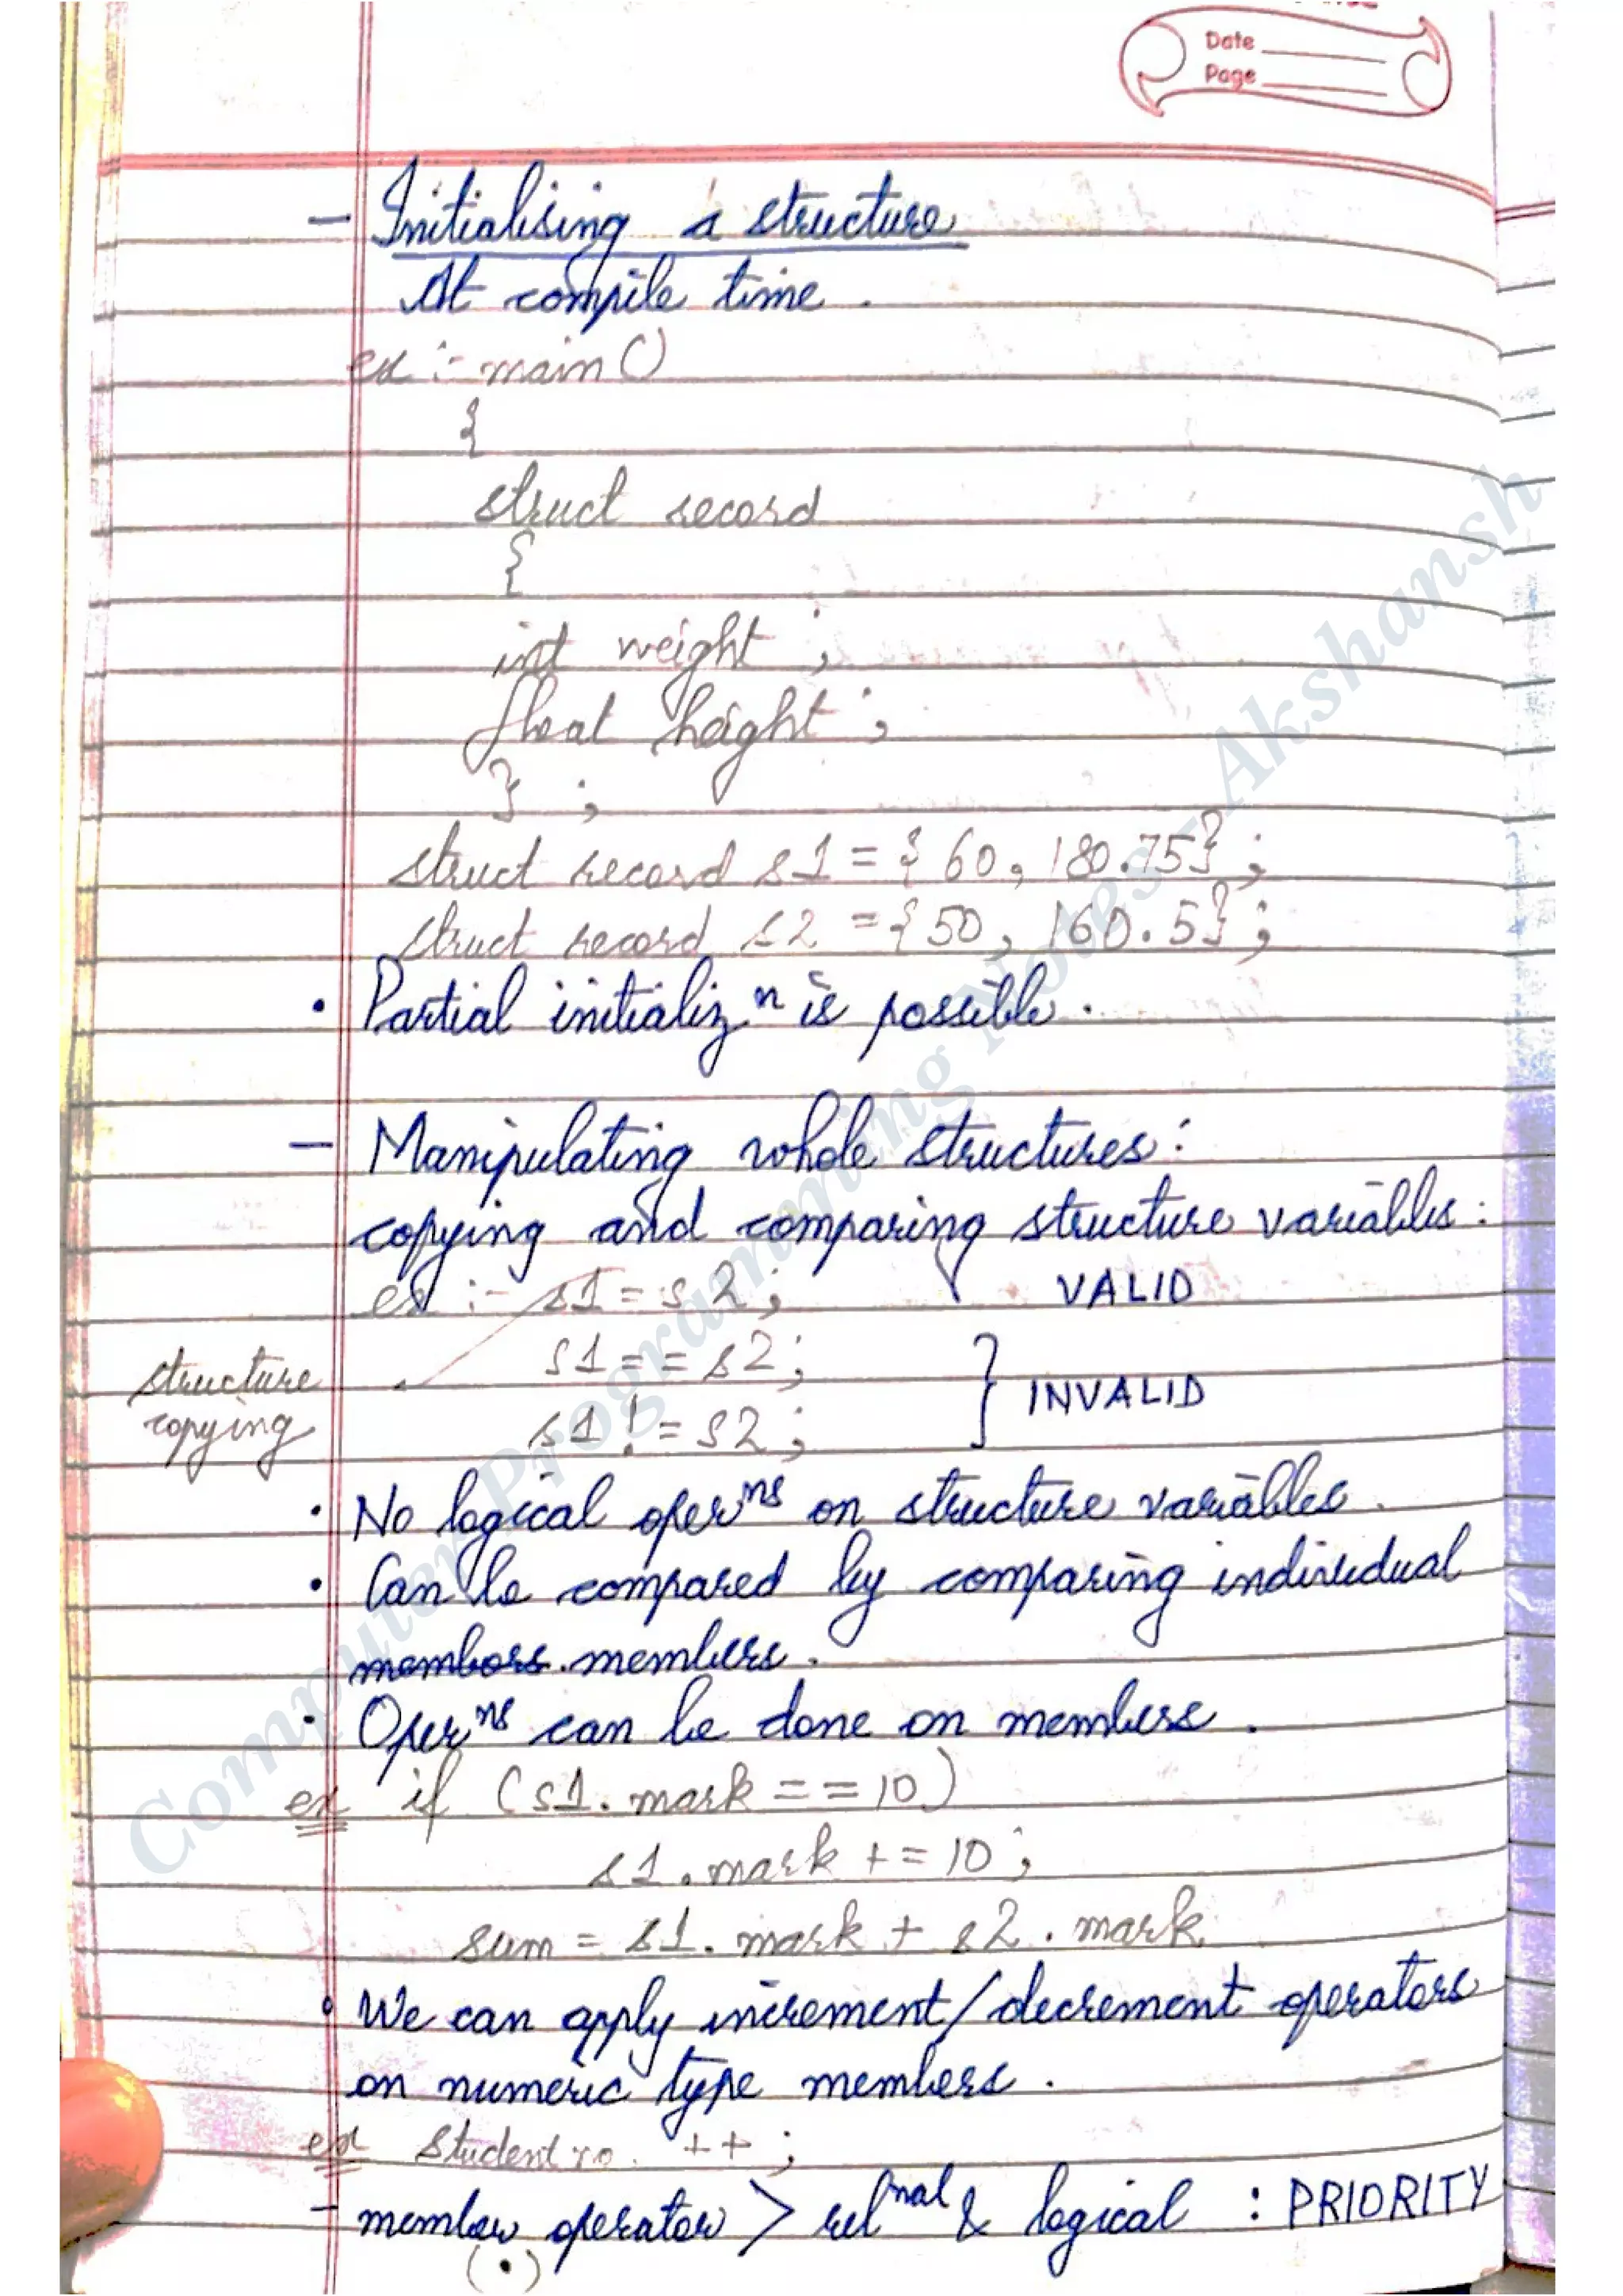 Date
Page
- Initialising a structure
At compile time.
ex :- main()
{
struct record
{
int weight ;
float height ;
} ;
struct record s1 = { 60, 180.75} ;
struct record s2 = {50, 160.5} ;
• Partial initializⁿ is possible.
- Manipulating whole structures :
copying and comparing structure variables :
ex :- s1 = s2 ; VALID
s1 == s2 ;
structure
copying
s1 != s2 ;
} INVALID
• No logical operⁿˢ on structure variables.
• Can be compared by comparing individual
members. members.
• Operⁿˢ can be done on members.
ex if (s1. mark == 10)
s1. mark += 10 ;
sum = s1. mark + s2 . mark
• We can apply increment/decrement operators
on numeric type members.
ex student ++ ;
- member operator > relⁿᵃˡ & logical : PRIORITY
(•)
Computer Programming Notes - Akshansh